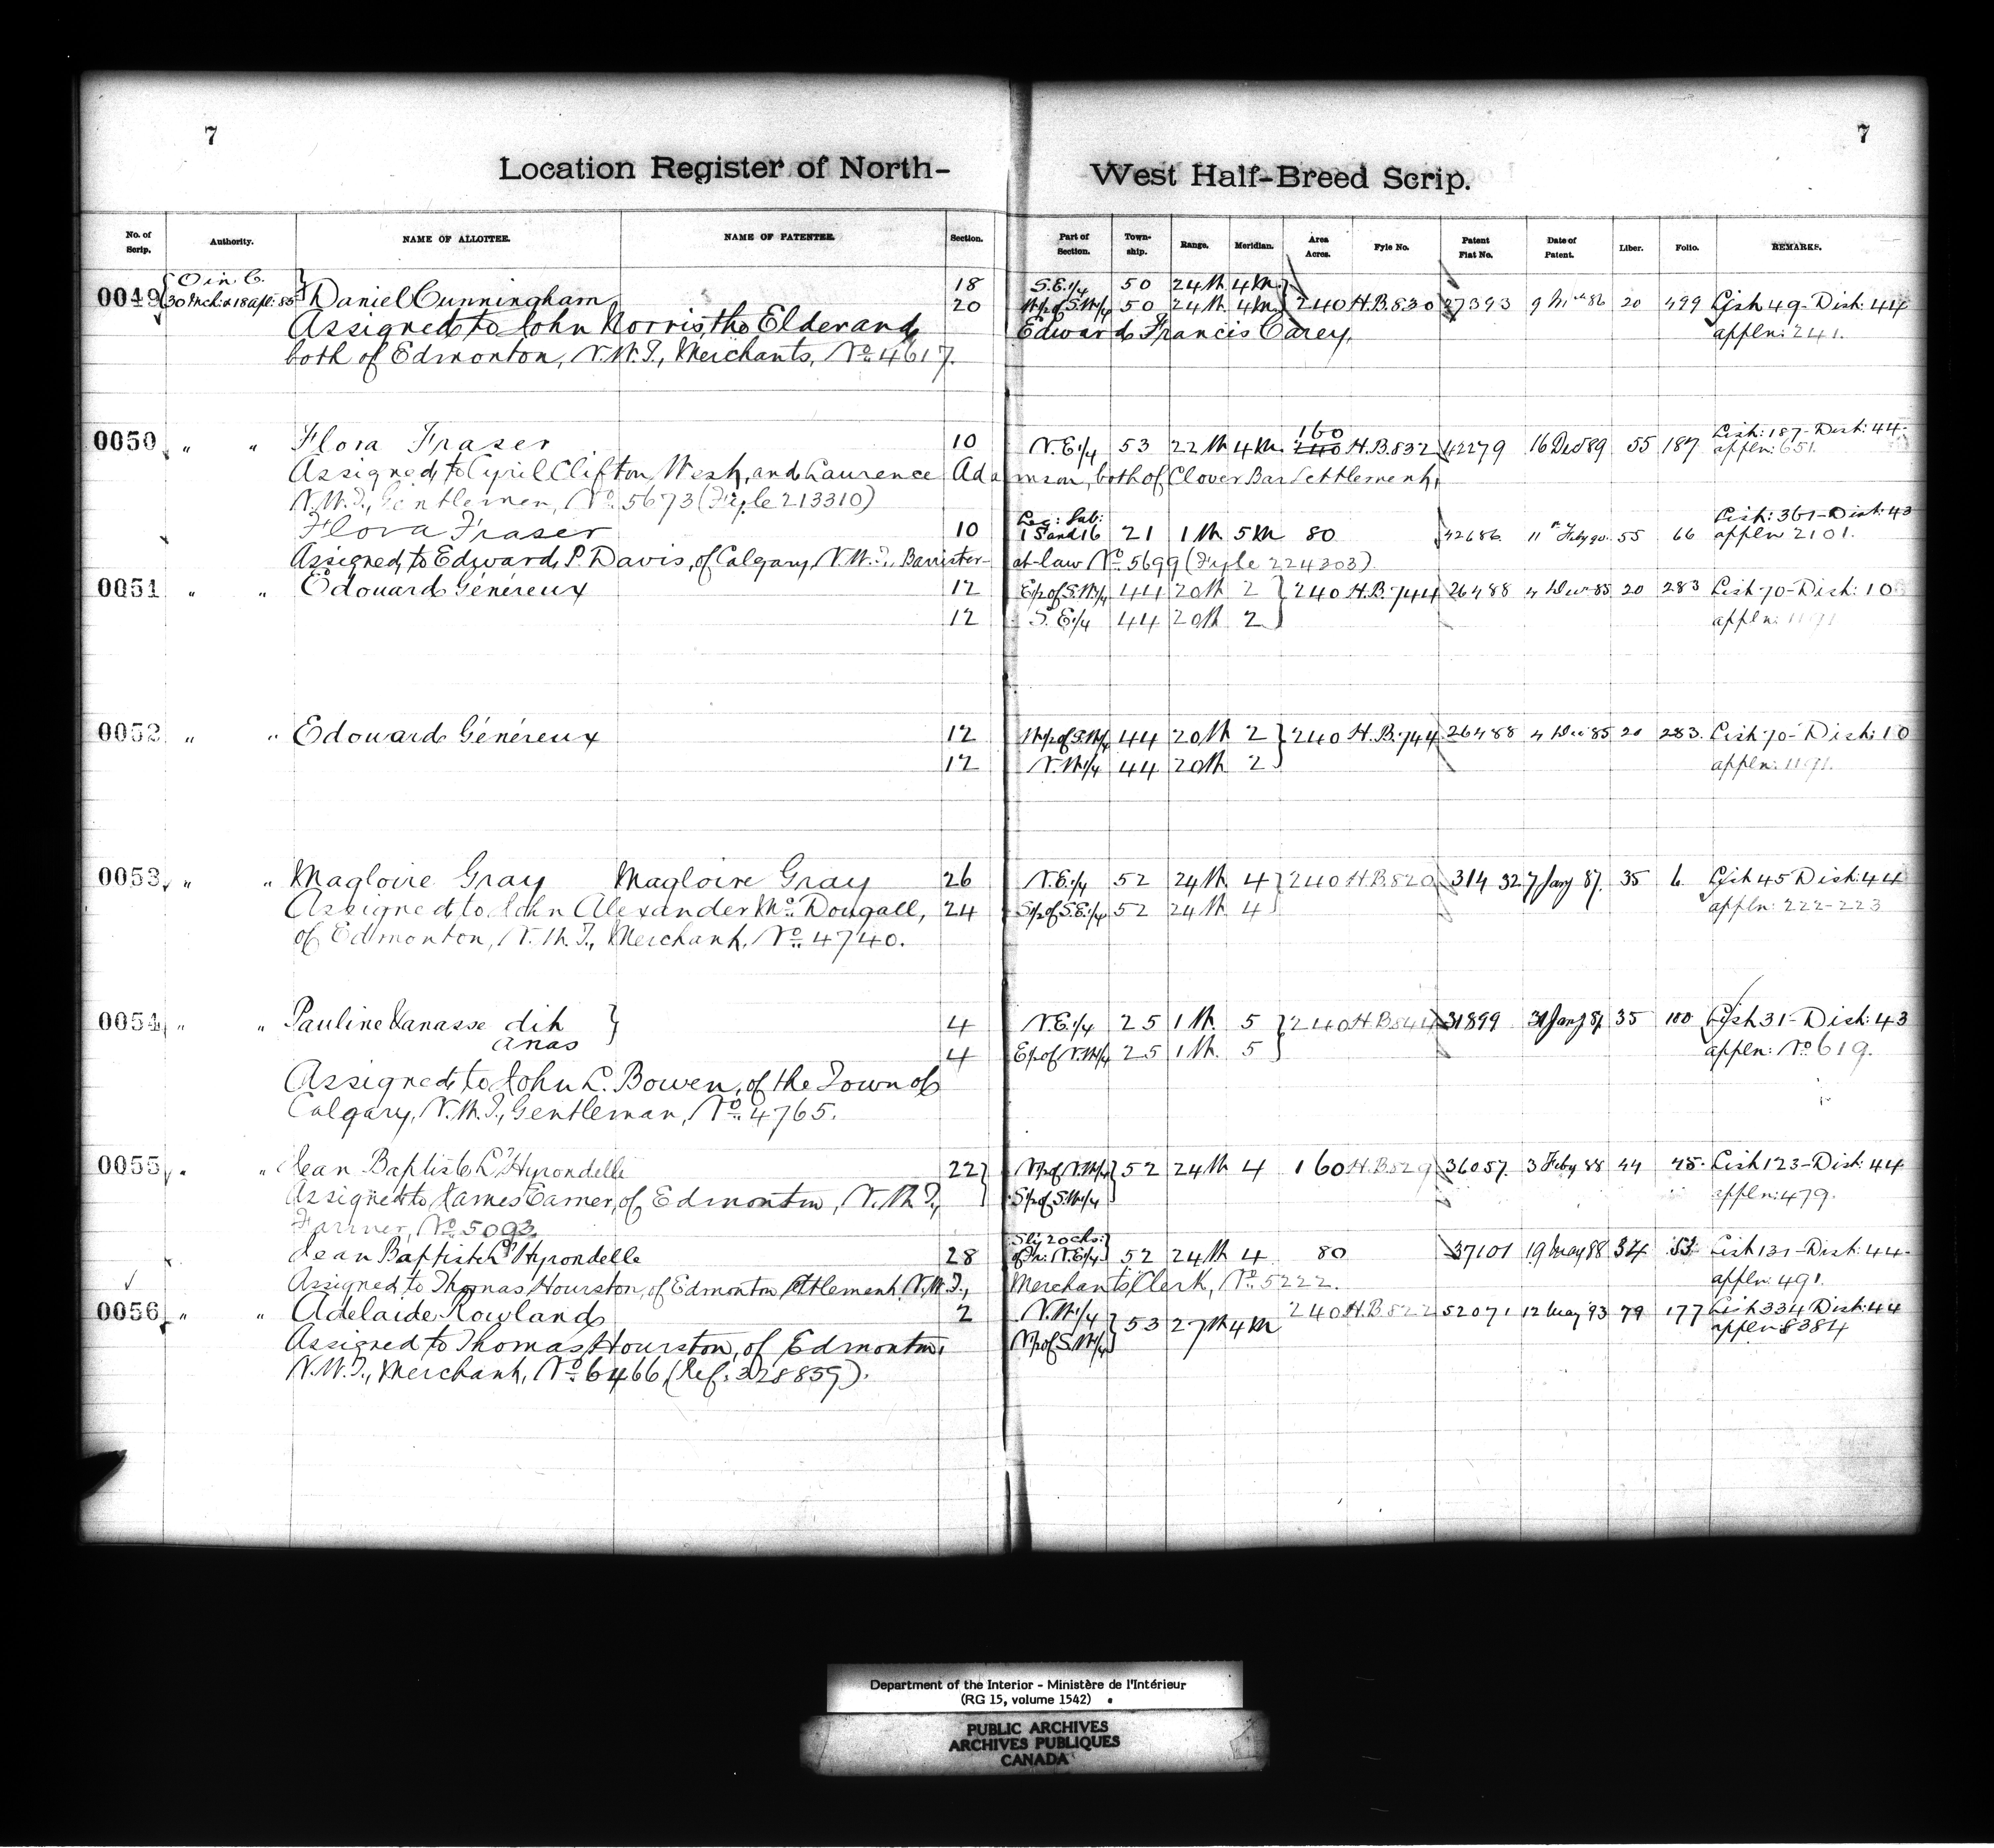 7
7
Location Register of North-West Half-Breed Scrip.
No. of Scrip. Authority. NAME OF ALLOTTEE. NAME OF PATENTEE. Section. Part of Section. Town-ship. Range. Meridian. Area Acres. Fyle No. Patent Fiat No. Date of Patent. Liber. Folio. REMARKS.
O in C. 18 S.E.1/4 50 24 W 4 M
0049 30 Mch. & 18 Apl: 85 Daniel Cunningham 20 W1/2 of S.W1/4 50 24 W 4 M 240 H.B.830 27393 20 499 List 49 - Dist: 44
Assigned to John Norris, the Elder and Edward Francis Carey, appln: 241.
both of Edmonton, N.W.T., Merchants, No. 4617.
0050 " " Flora Fraser 10 N.E.1/4 53 22 W 4 M. 160 240 H.B.832 42279 16 Dec 89 55 187 List: 187 - Dist: 44 -
appln: 651.
Assigned to Cyril Clifton West, and Laurence Adamson, both of Clover Bar Settlement,
N.W.T., Gentlemen, No. 5673 (Fyle 213310)
Flora Fraser 10 Leg: Sub: 15 and 16 21 1 W 5 M 80 42686 11th Feby 90. 55 66 List: 361 - Dist: 43
appln 2101.
Assigned to Edward P. Davis, of Calgary, N.W.T., Barrister-at-law No. 5699 (Fyle 224303)
0051 " " Edouard Généreux 12 E1/2 of S.W1/4 44 20 W 2 240 H.B. 744 26488 4 Decr 85 20 283 List 70 - Dist: 10
12 S.E.1/4 44 20 W 2 appln: 1191
0052 " " Edouard Généreux 12 W1/2 of S.W1/4 44 20 W 2 240 H.B. 744 26488 4 Decr 85 20 283. List 70 - Dist: 10
12 N.W1/4 44 20 W 2 appln: 1191.
0053 " " Magloire Gray Magloire Gray 26 N.E.1/4 52 24 W 4 240 H.B.820 31432 7 Jany 87. 35 6 List 45 Dist: 44
Assigned to John Alexander McDougall, 24 S1/2 of S.E.1/4 52 24 W 4 appln: 222-223
of Edmonton, N.W.T., Merchant, No. 4740.
0054 " " Pauline Vanasse dit 4 N.E.1/4 25 1 W. 5 240 31899 31 Jany 87 35 100 List 31 - Dist: 43
Anas 4 E1/2 of N.W1/4 25 1 W. 5 appln: No. 619.
Assigned to John L. Bowen, of the Town of
Calgary, N.W.T., Gentleman, No. 4765.
0055 " " Jean Baptiste L'Hyrondelle 22 N1/2 of N.W1/4 52 24 W 4 160 H.B.829 36057. 3 Feby 88 44 List 123 - Dist: 44
Assigned to James Eamer, of Edmonton, N.W.T., S1/2 of S.W1/4 appln: 479.
Farmer, No. 5093.
Jean Baptiste L'Hyrondelle 28 Sly 20 chs: of Fr: N.E1/4 52 24 W 4 80 37101 19 May 88 34 53 List 131 - Dist: 44 -
Assigned to Thomas Hourston, of Edmonton Settlement, N.W.T., Merchant's Clerk, No. 5222. appln: 491.
0056 " " Adelaide Rowland 2 N.W1/4 53 27 W 4 M 240 H.B.822 52071 12 May '93 79 177 List 334 Dist: 44
Assigned to Thomas Hourston, of Edmonton, N1/2 of S.W1/4 appln 8384
N.W.T., Merchant, No. 6466, (Ref: 328859).
Department of the Interior - Ministère de l'Intérieur
(RG 15, volume 1542)
PUBLIC ARCHIVES
ARCHIVES PUBLIQUES
CANADA